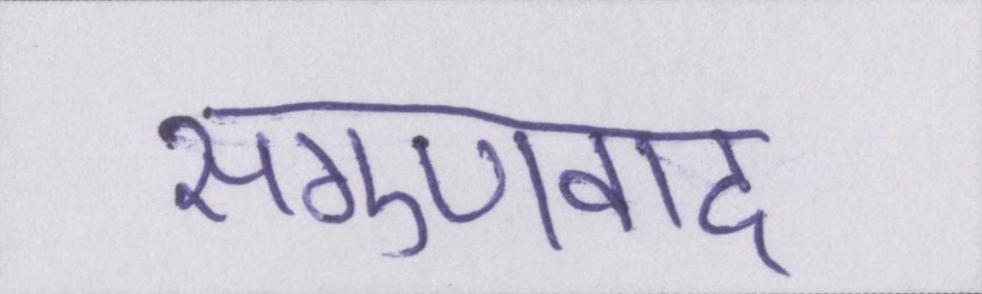 सगुणवाद